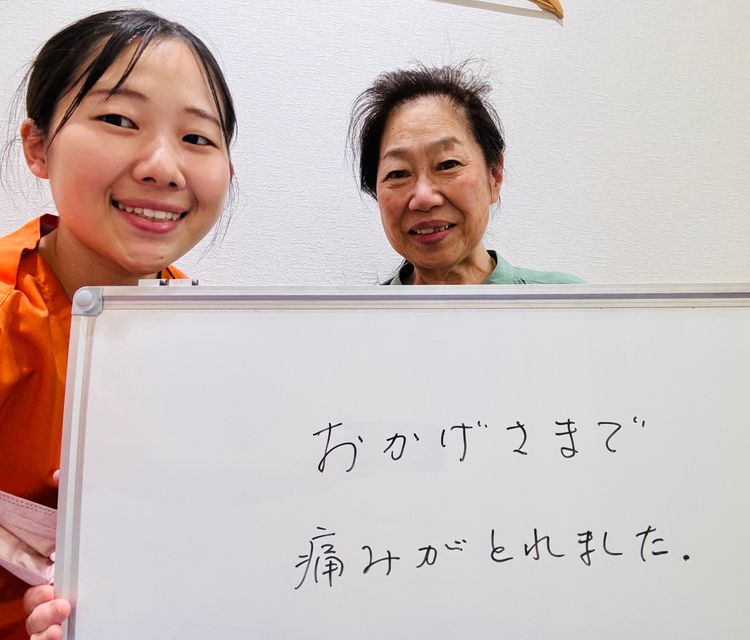 おかげさまで
痛みがとれました.